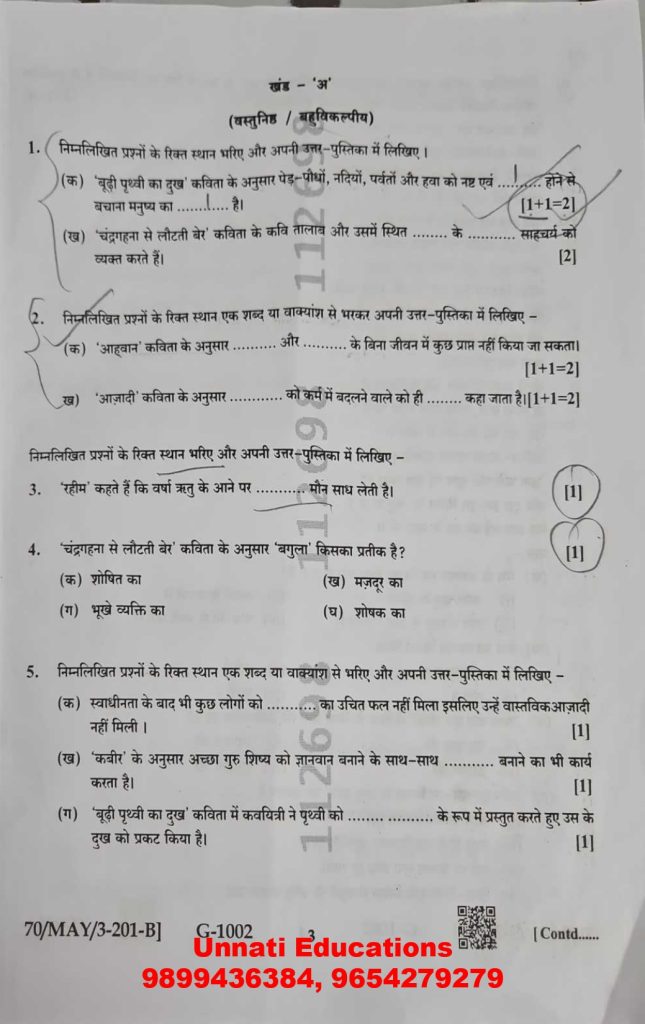 खंड – 'अ'
(वस्तुनिष्ठ / बहुविकल्पीय)
1. निम्नलिखित प्रश्नों के रिक्त स्थान भरिए और अपनी उत्तर-पुस्तिका में लिखिए।
(क) 'बूढ़ी पृथ्वी का दुख' कविता के अनुसार पेड़-पौधों, नदियों, पर्वतों और हवा को नष्ट एवं ........... होने से
बचाना मनुष्य का ........... है। [1+1=2]
(ख) 'चंद्रगहना से लौटती बेर' कविता के कवि तालाब और उसमें स्थित ........ के ........... साहचर्य को
व्यक्त करते हैं। [2]
2. निम्नलिखित प्रश्नों के रिक्त स्थान एक शब्द या वाक्यांश से भरकर अपनी उत्तर-पुस्तिका में लिखिए –
(क) 'आह्वान' कविता के अनुसार .......... और .......... के बिना जीवन में कुछ प्राप्त नहीं किया जा सकता।
[1+1=2]
ख) 'आज़ादी' कविता के अनुसार ............ को कर्म में बदलने वाले को ही ........ कहा जाता है।[1+1=2]
निम्नलिखित प्रश्नों के रिक्त स्थान भरिए और अपनी उत्तर-पुस्तिका में लिखिए –
3. 'रहीम' कहते हैं कि वर्षा ऋतु के आने पर ........... मौन साध लेती है। [1]
4. 'चंद्रगहना से लौटती बेर' कविता के अनुसार 'बगुला' किसका प्रतीक है? [1]
(क) शोषित का (ख) मज़दूर का
(ग) भूखे व्यक्ति का (घ) शोषक का
5. निम्नलिखित प्रश्नों के रिक्त स्थान एक शब्द या वाक्यांश से भरिए और अपनी उत्तर-पुस्तिका में लिखिए –
(क) स्वाधीनता के बाद भी कुछ लोगों को ........... का उचित फल नहीं मिला इसलिए उन्हें वास्तविकआज़ादी
नहीं मिली । [1]
(ख) 'कबीर' के अनुसार अच्छा गुरु शिष्य को ज्ञानवान बनाने के साथ-साथ ........... बनाने का भी कार्य
करता है। [1]
(ग) 'बूढ़ी पृथ्वी का दुख' कविता में कवयित्री ने पृथ्वी को ........ .......... के रूप में प्रस्तुत करते हुए उस के
दुख को प्रकट किया है। [1]
112698
112698
112698
70/MAY/3-201-B] G-1002 3 [ Contd......
Unnati Educations
9899436384, 9654279279